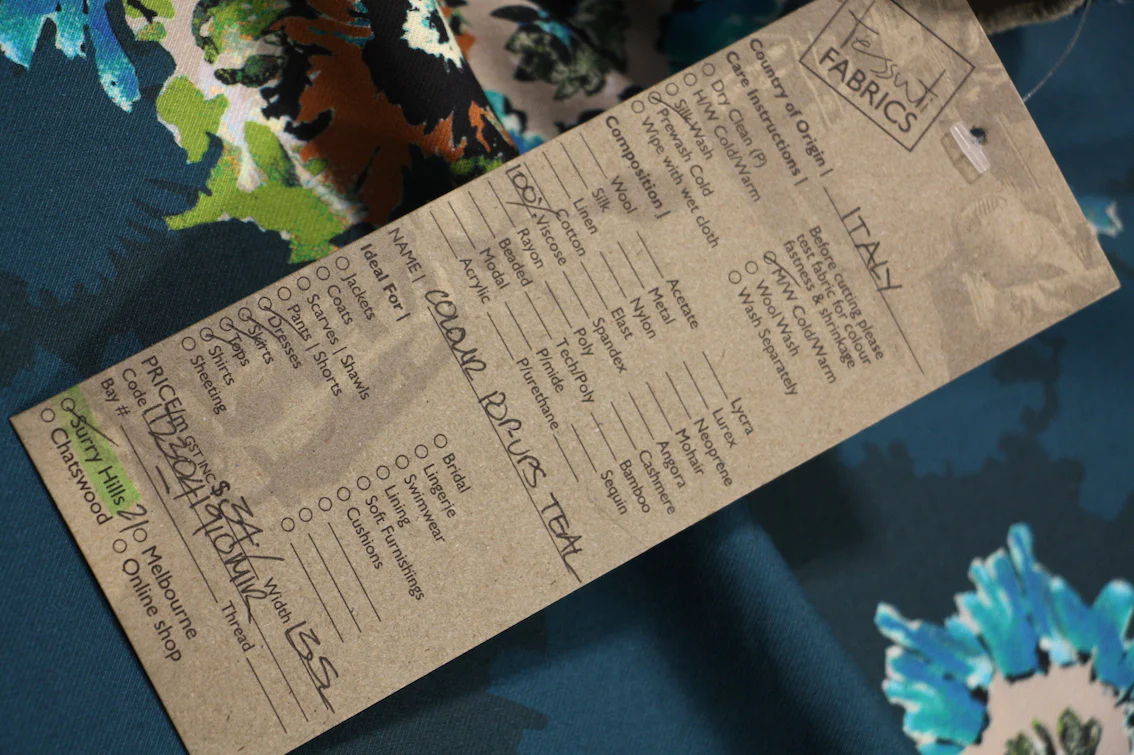 Tessuti
FABRICS
Country of Origin | ITALY
Care Instructions |
Dry Clean (P)
H/W Cold/Warm
Silk Wash
Prewash Cold
Wipe with wet cloth
Before cutting please
test fabric for colour
fastness & shrinkage
M/W Cold/Warm
Wool Wash
Wash Separately
Composition |
Wool
Silk
Linen
Cotton
100% Viscose
Rayon
Beaded
Modal
Acrylic
Acetate
Metal
Nylon
Elast
Spandex
Poly
Tech/Poly
P/mide
P/urethane
Lycra
Lurex
Neoprene
Mohair
Angora
Cashmere
Bamboo
Sequin
NAME | COLOUR POP-UPS TEAL
Ideal For |
Jackets
Coats
Scarves | Shawls
Pants | Shorts
Dresses
Skirts
Tops
Shirts
Sheeting
Bridal
Lingerie
Swimwear
Lining
Soft Furnishings
Cushions
PRICE/m GST INC $ 34.- Width 135
Code
Bay # Thread
Surry Hills 2/ Melbourne
Chatswood Online shop